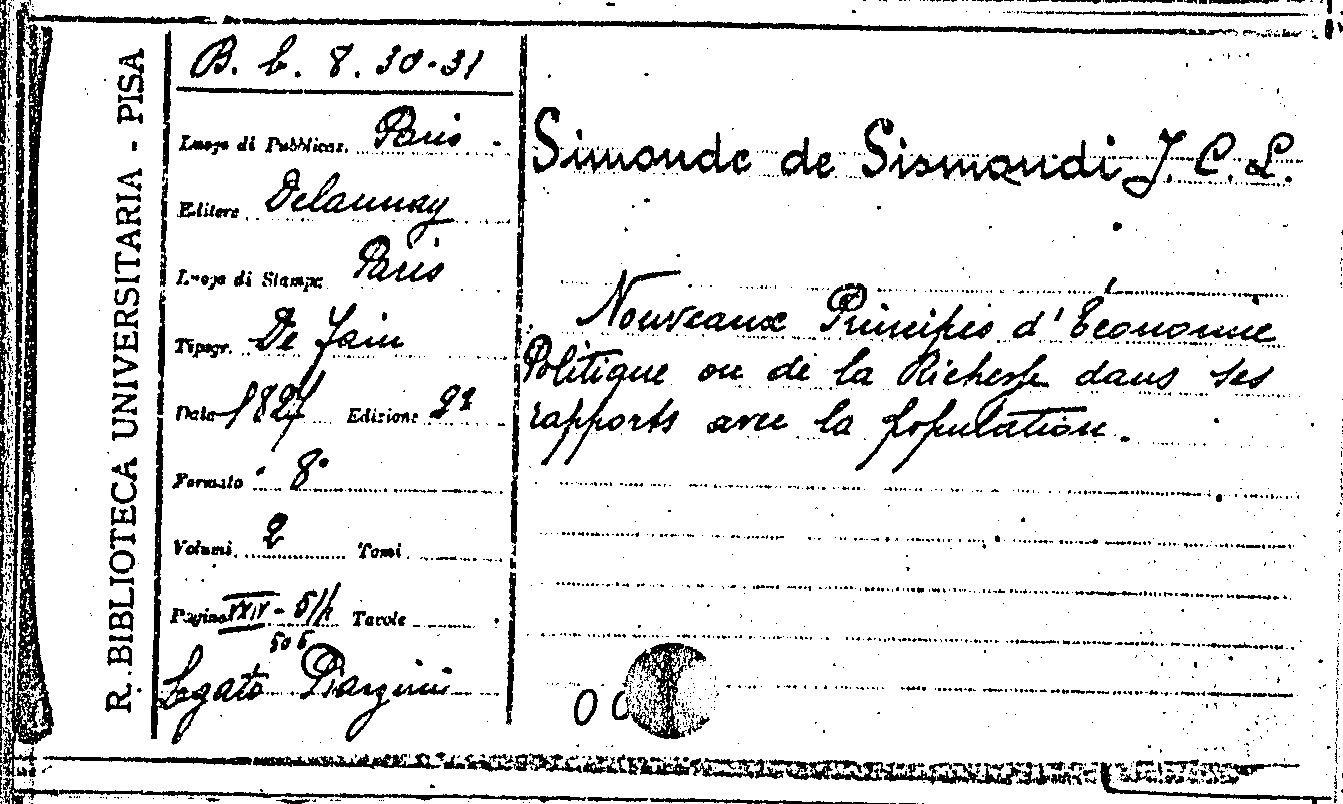 R. BIBLIOTECA UNIVERSITARIA - PISA
B. b. 8. 30-31
Luogo di Pubblicaz. Paris
Editore Delaunay
Luogo di Stampa Paris
Tipogr. De Fain
Data 1827 Edizione 2ª
Formato 8°
Volumi 2 Tomi
Pagine XXIV - Tavole
505
Legato
Simonde de Sismondi J. C. L.
Nouveaux Principes d'Économie
Politique ou de la Richesse dans ses
rapports avec la population.